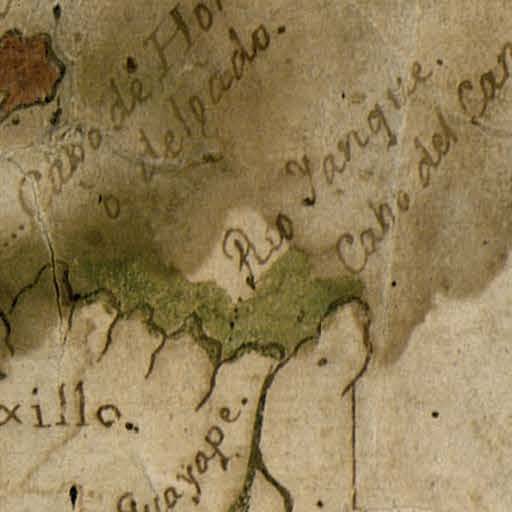 Cabo de Hon
o delgado.
Rio Yangue.
Cabo del Cam
xillo.
Guayape.